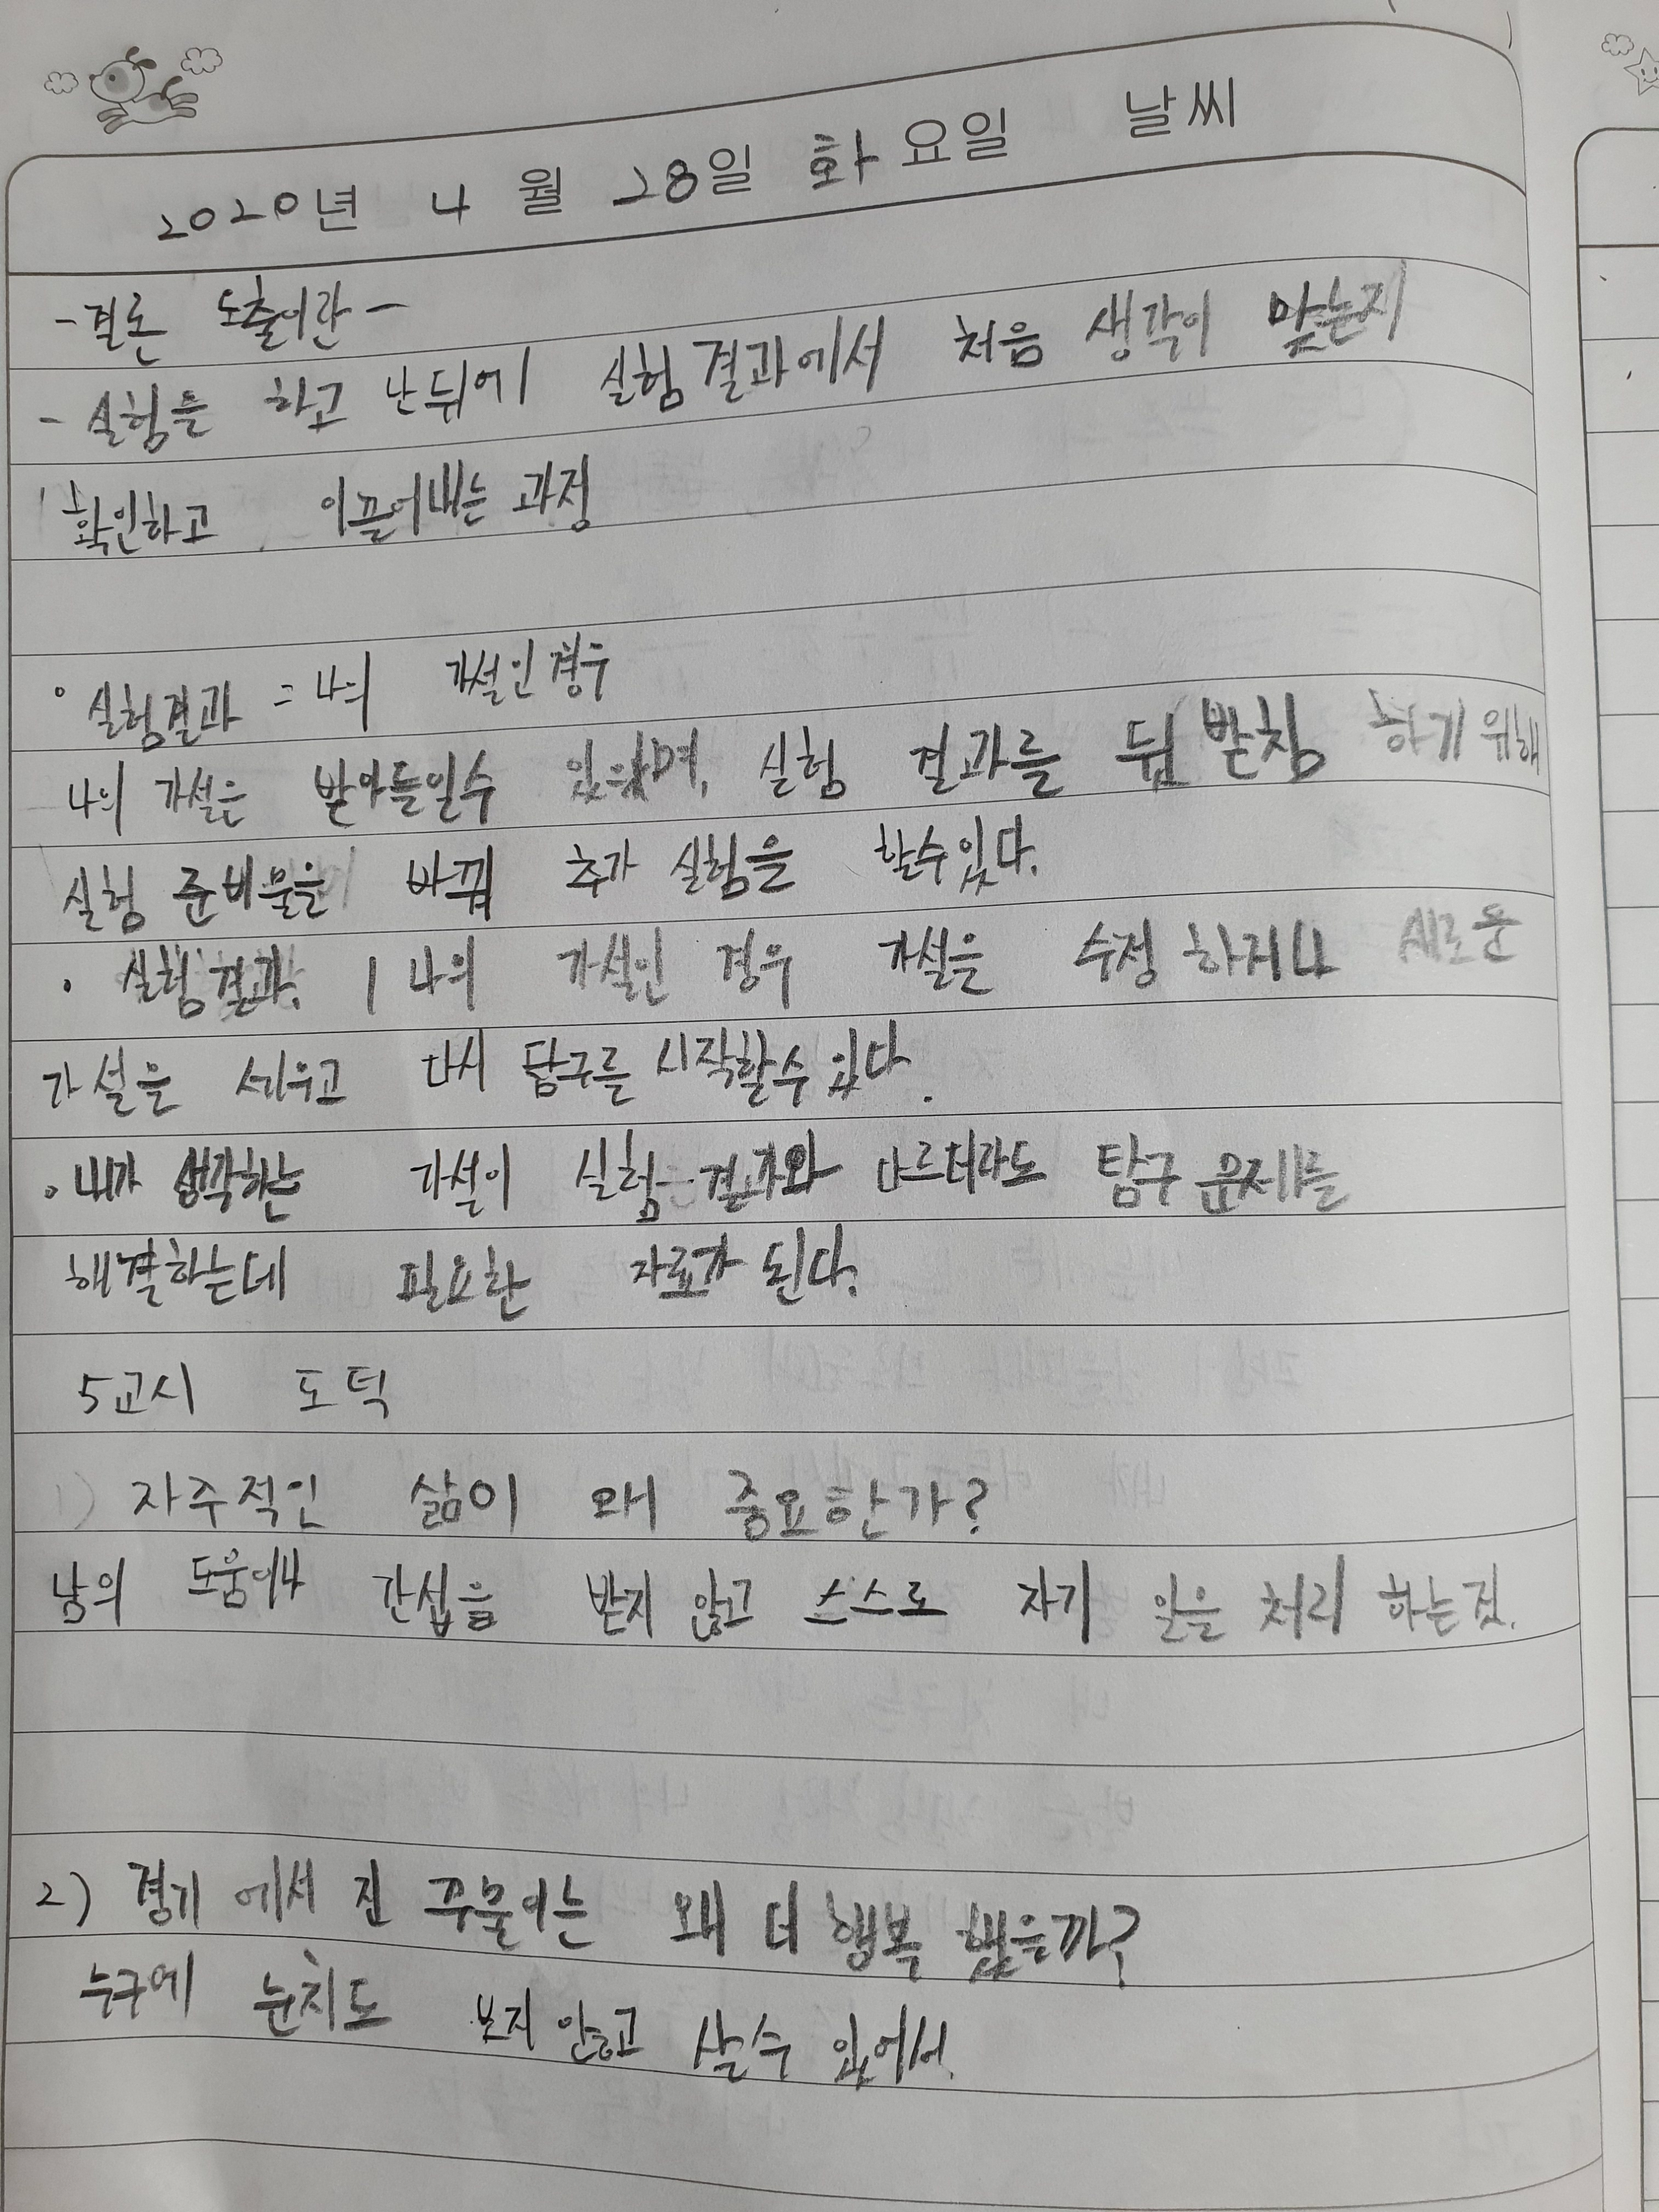 2020년 4월 28일 화요일 날씨
-결론 도출이란-
- 실험을 하고 난뒤에 실험결과에서 처음 생각이 맞는지
확인하고 이끌어내는 과정
실험결과 = 나의 가설인경우
나의 가설은 받아들일수 있으며, 실험 결과를 뒷받침 하기위해
실험 준비물을 바꿔 추가 실험을 할수있다.
· 실험결과 나의 가설인 경우 가설을 수정 하거나 새로운
가설을 세우고 다시 탐구를 시작할수 있다.
· 내가 생각하는 가설이 실험 결과와 다르더라도 탐구 문제를
해결하는데 필요한 자료가 된다.
5교시 도덕
1) 자주적인 삶이 왜 중요한가?
남의 도움이나 간섭을 받지 않고 스스로 자기 일을 처리 하는것.
2) 경기 에서 진 꾸물이는 왜 더 행복 했을까?
누구에 눈치도 보지 안하고 살수 있어서.